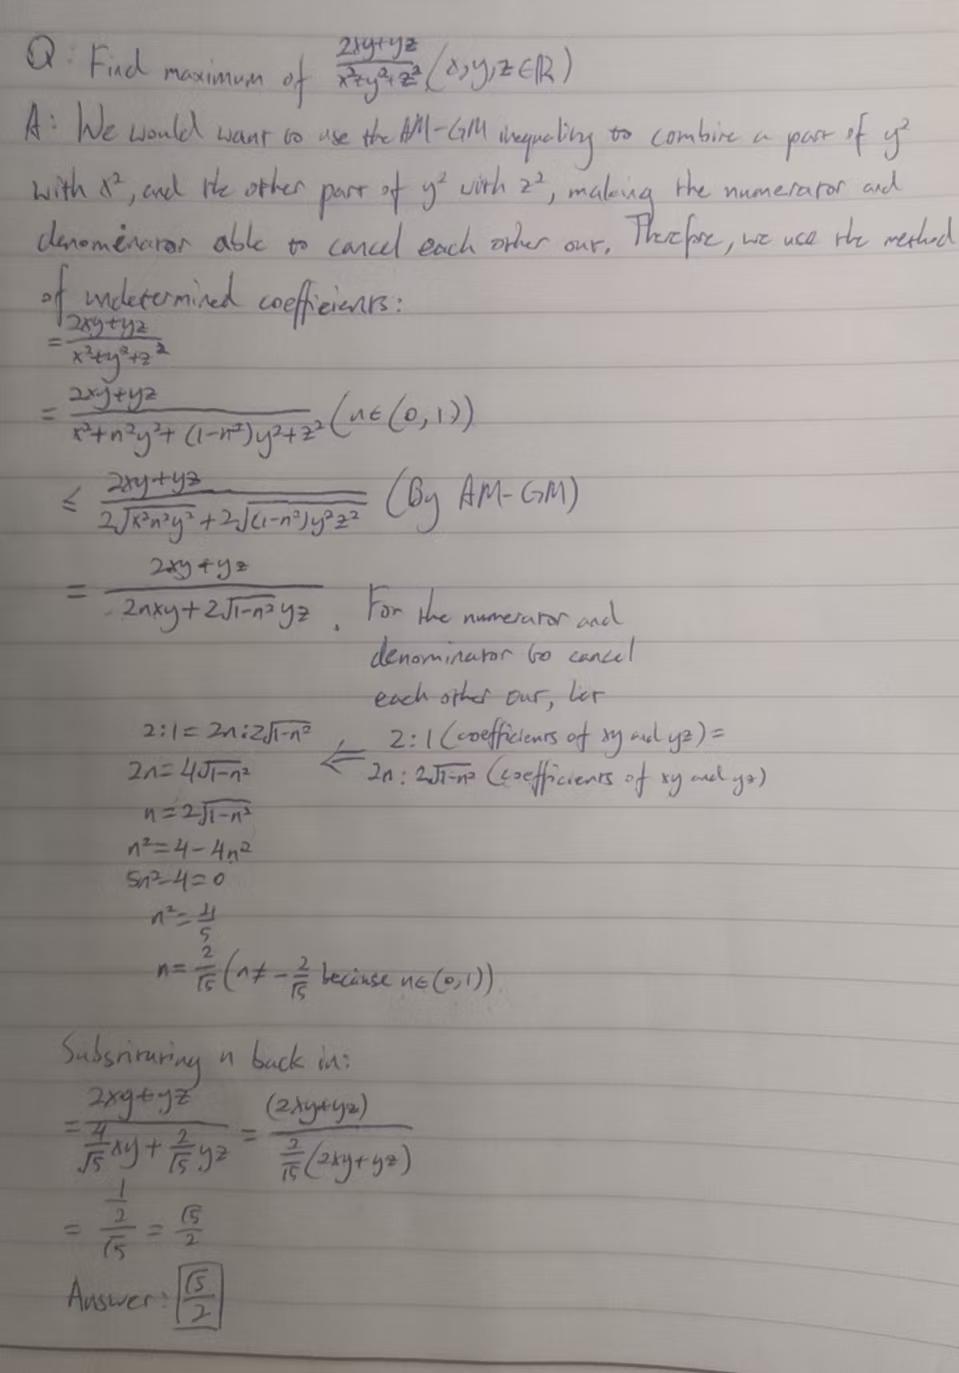 Q: Find maximum of \frac{2xy+yz}{x²+y²+z²} (x,y,z∈ℝ)
A: We would want to use the AM-GM inequality to combine a part of y²
with x², and the other part of y² with z², making the numerator and
denominator able to cancel each other our. Therefore, we use the method
of undetermined coefficients:
= \frac{2xy+yz}{x²+y²+z²}
= \frac{2xy+yz}{x²+n²y²+(1-n²)y²+z²} (n∈(0,1))
≤ \frac{2xy+yz}{2\sqrt{x²n²y²}+2\sqrt{(1-n²)y²z²}} (By AM-GM)
= \frac{2xy+yz}{2nxy+2\sqrt{1-n²}yz}. For the numerator and
denominator to cancel
each other our, let
2:1 (coefficients of xy and yz) =
2n:2\sqrt{1-n²} (coefficients of xy and yz)
⇐
2:1=2n:2\sqrt{1-n²}
2n=4\sqrt{1-n²}
n=2\sqrt{1-n²}
n²=4-4n²
5n²-4=0
n²=\frac{4}{5}
n=\frac{2}{\sqrt{5}} (n≠-\frac{2}{\sqrt{5}} because n∈(0,1))
Substituting n back in:
= \frac{2xy+yz}{\frac{4}{\sqrt{5}}xy+\frac{2}{\sqrt{5}}yz} = \frac{(2xy+yz)}{\frac{2}{\sqrt{5}}(2xy+yz)}
= \frac{1}{\frac{2}{\sqrt{5}}} = \frac{\sqrt{5}}{2}
Answer: \frac{\sqrt{5}}{2}